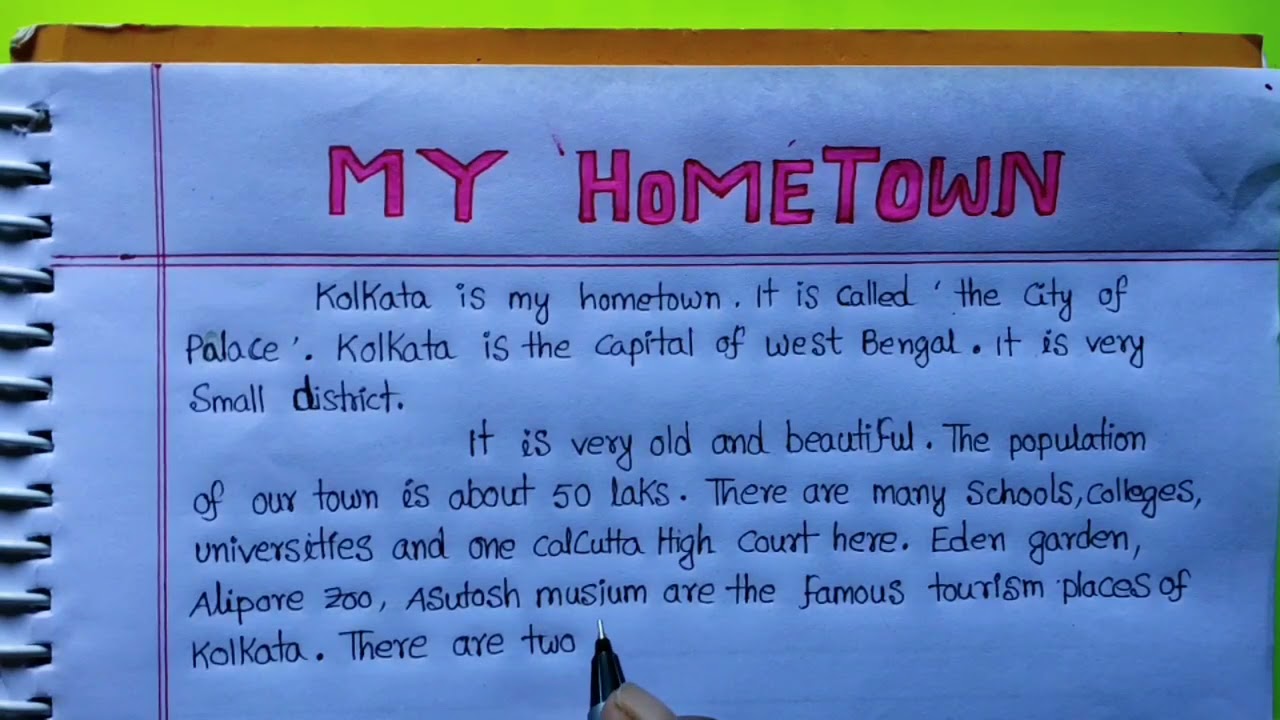 MY HOMETOWN
Kolkata is my hometown. It is called 'the City of
Palace'. Kolkata is the capital of west Bengal. it is very
Small district.
It is very old and beautiful. The population
of our town is about 50 laks. There are many Schools, colleges,
universities and one calcutta High court here. Eden garden,
Alipore zoo, Asutosh musium are the famous tourism places of
Kolkata. There are two